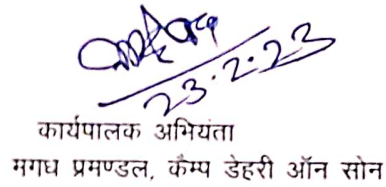 23.2.23
कार्यपालक अभियंता
मगध प्रमण्डल, कैम्प डेहरी ऑन सोन